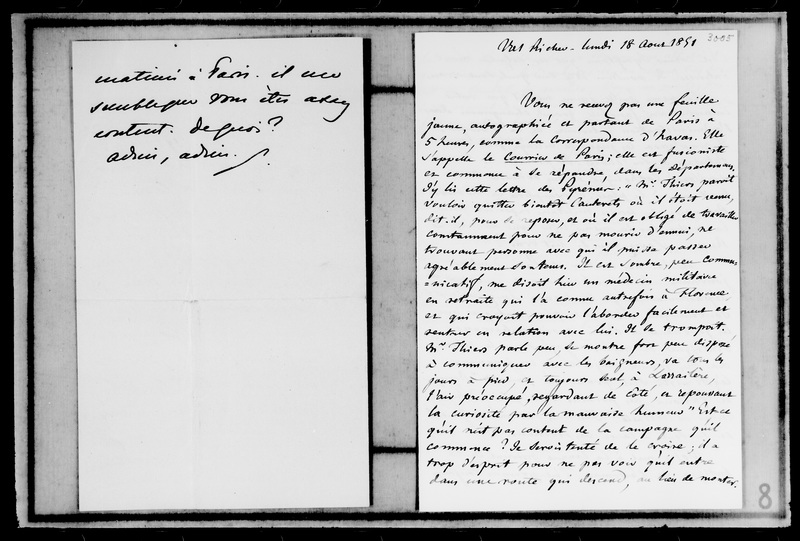 matinée à Paris. il me
semble que vous êtes assez
content. De quoi?
adieu, adieu.
3005
Val Richer - lundi 18 Aout 1851
Vous ne recevez pas une feuille
jaune, autographiée et partant de Paris à
5 heures, comme la Correspondance d'havas. Elle
s'appelle le Courrier de Paris; elle est fusioniste
et commence à se répandre dans les Départemens.
J'y lis cette lettre des Pyrénées: "Mr. Thiers paroît
vouloir quitter bientôt Cauterets où il était venu,
dit-il, pour se reposer, et où il est obligé de travailler
constamment pour ne pas mourir d'ennui, ne
trouvant personne avec qui il puisse passer
agréablement son tems. Il est sombre, peu commu=
=nicatif, me disoit hier un médecin militaire
en retraite qui l'a connu autrefois à Florence
et qui croyoit pouvoir l'aborder facilement et
rentrer en relation avec lui. Il se trompoit.
Mr. Thiers parle peu, se montre fort peu disposé
à communiquer avec les baigneurs, va tous les
jours à pied, et toujours seul, à Larraillère,
l'air préoccupé, regardant de côté, et repoussant
la curiosité par la mauvaise humeur." Est-ce
qu'il n'est pas content de la campagne qu'il
commence? Je serois tenté de le croire; il a
trop d'esprit pour ne pas voir qu'il entre
dans une route qui descend, au lieu de monter.
8